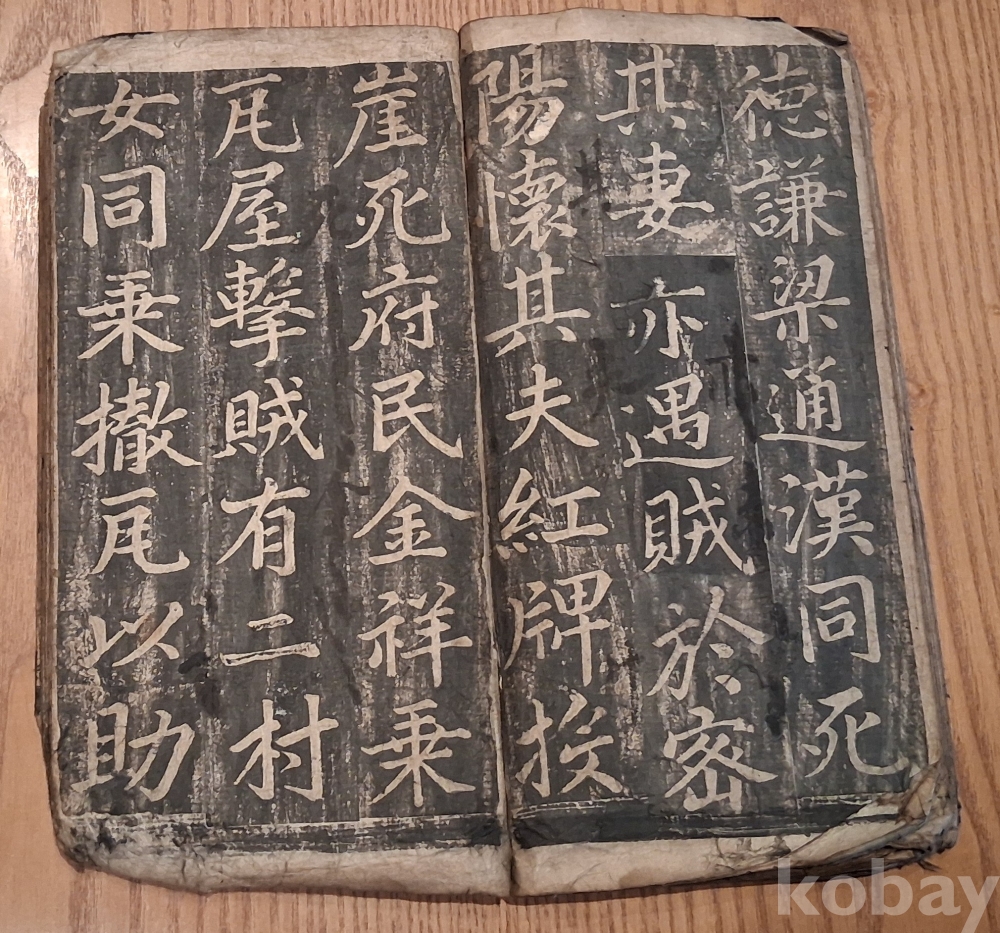 德謙梁通漢同死
其妻亦遇賊於密
陽懷其夫紅牌投
崖死府民金祥乗
瓦屋擊賊有二村
女同乗撤瓦以助
kobay